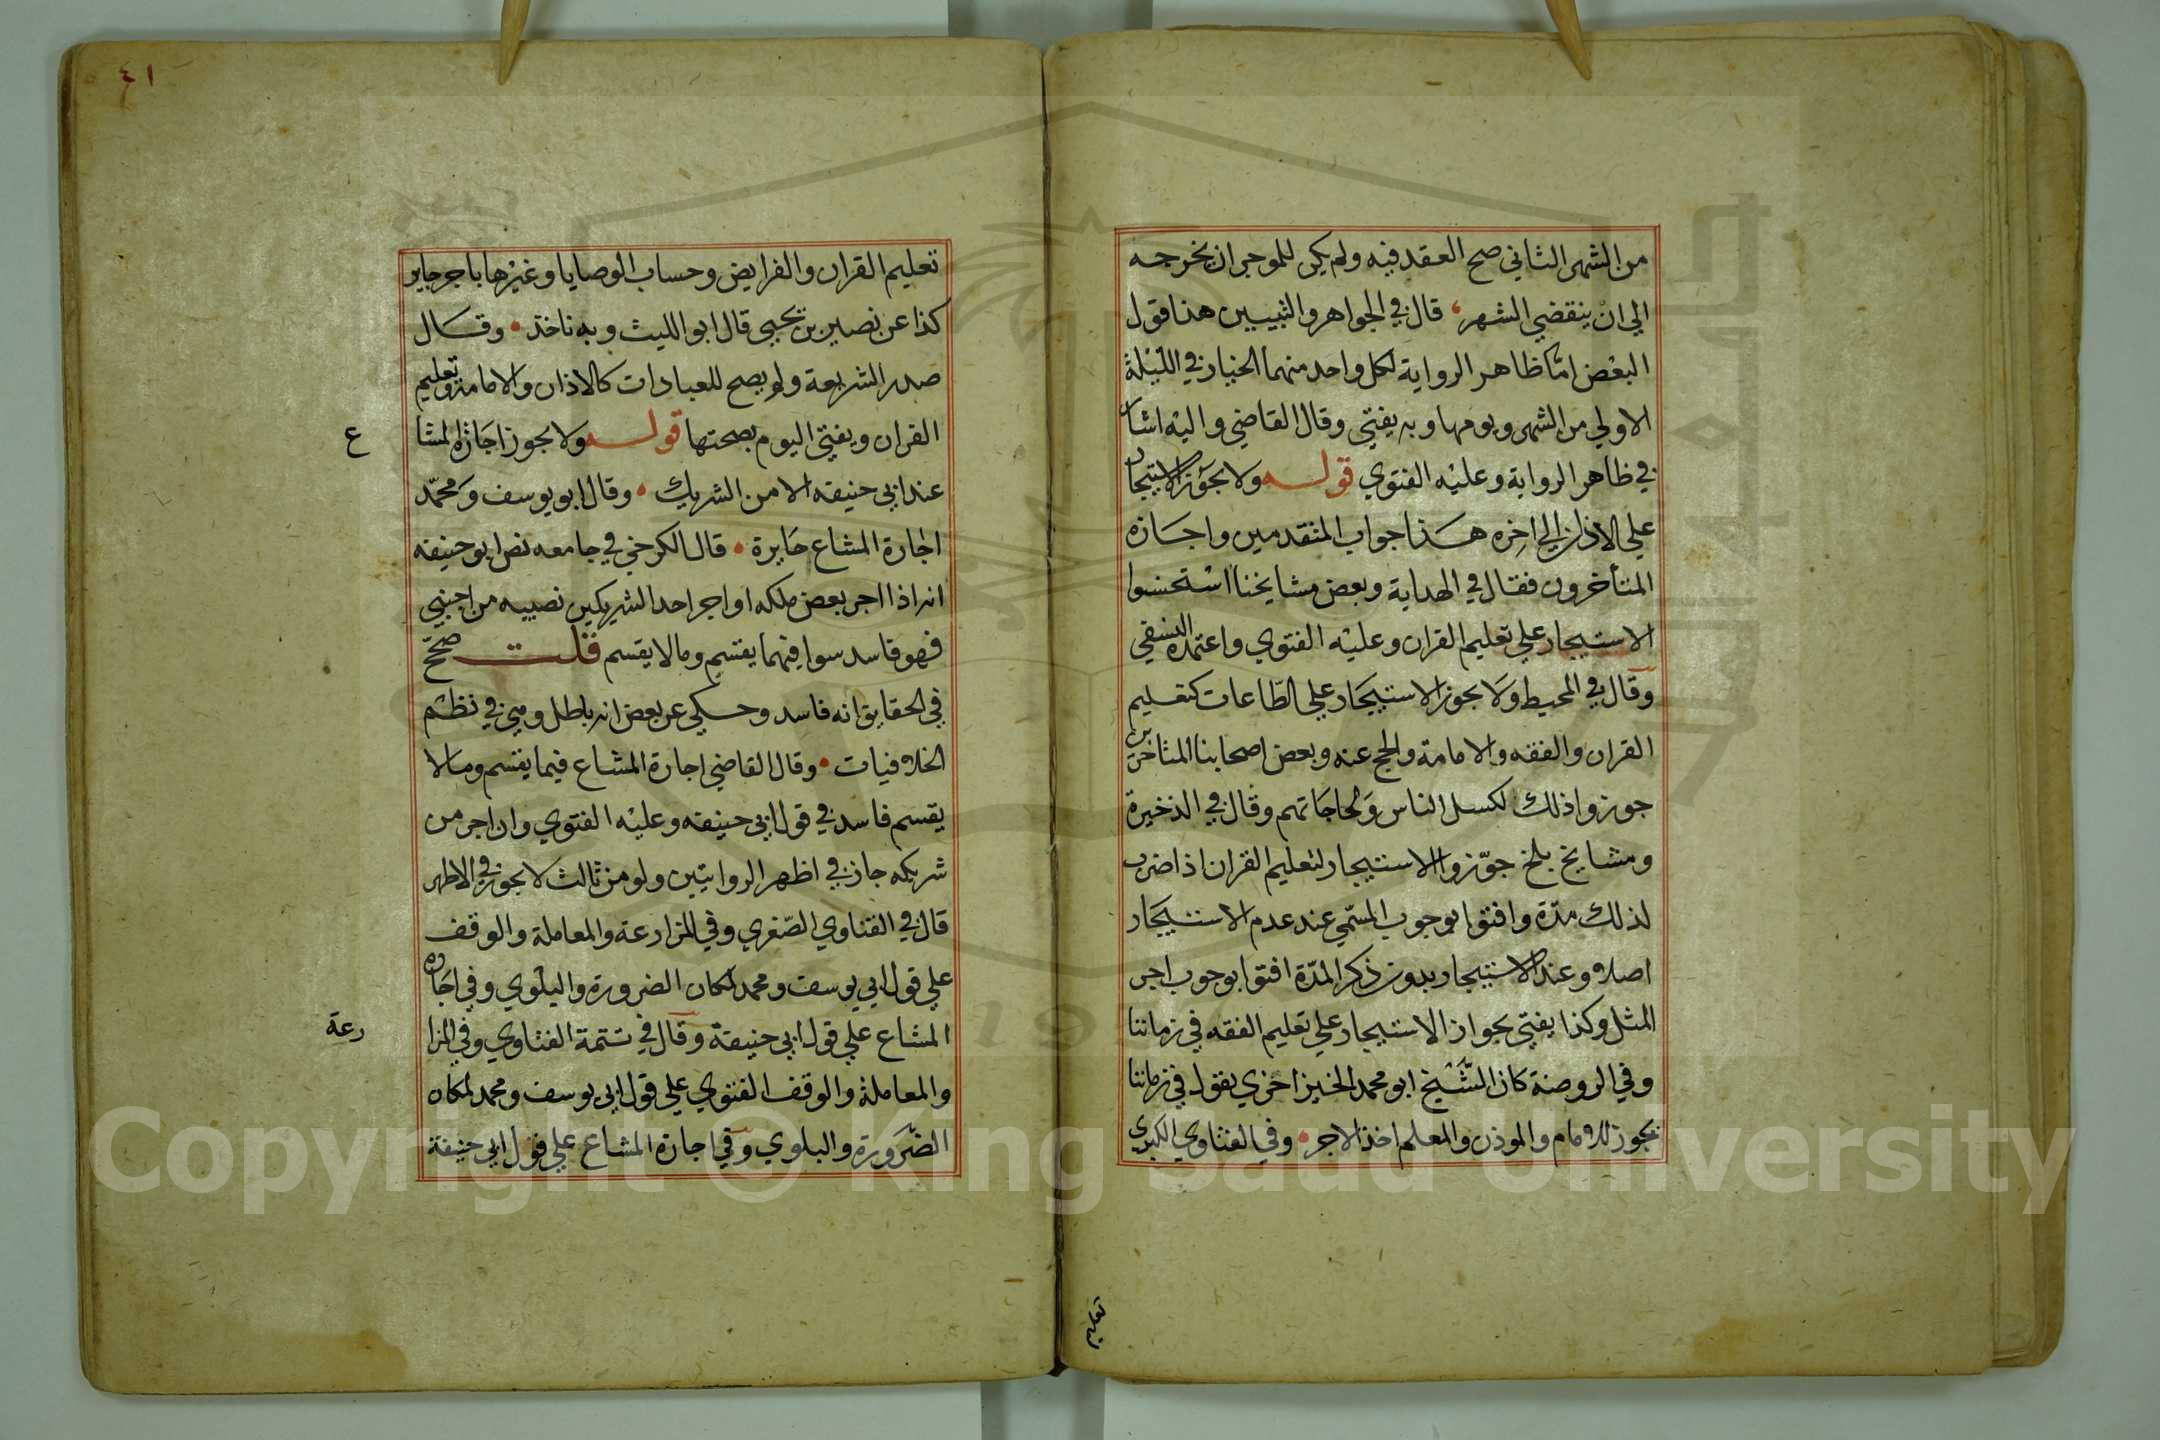 من الشهر الثاني صح العقد فيه ولم يكن للموجر ان يخرجه
الي ان ينقضي الشهر، قال في الجواهر والتبيين هذا قول
البعض امّا ظاهر الرواية لكل واحد منهما الخيار في الليلة
الاولي من الشهر ويومها وبه يفتي وقال القاضي واليه اشار
في ظاهر الرواية وعليه الفتوي قوله ولا يجوز الاستيجار
علي الاذان الي اخره هذا جواب المتقدمين واجازه
المتأخرون فقال في الهداية وبعض مشايخنا استحسنوا
الاستيجار علي تعليم القران وعليه الفتوي واعتمده النسفي
وقال في المحيط ولا يجوز الاستيجار علي الطّاعات كتعليم
القران والفقه والامامة والحج عنه وبعض اصحابنا المتاخرين
جوزوا ذلك لكسل الناس ولحاجاتهم وقال في الذخيرة
ومشايخ بلخ جوّزوا الاستيجار لتعليم القران اذا ضرب
لذلك مدّة وافتوا بوجوب المسّمي عند عدم الاستيجار
اصلا وعند الاستيجار بدون ذكر المدّة افتوا بوجوب اجر
المثل وكذا يفتي بجواز الاستيجار علي تعليم الفقه في زماننا
وفي الروضة كان الشّيخ ابو محمد الخيزاخزي يقول في زماننا
يجوز للامام والموذن والمعلم اخذ الاجر • وفي الفتاوي الكبري
٤١
تعليم القران والفرايض وحساب الوصايا وغيرها باجر جايز
كذا عن نصير بن يحيي قال ابو الليث وبه ناخذ • وقال
صدر الشريعة ولو يصح للعبادات كالاذان والامامة وتعليم
القران ويفتي اليوم بصحتها قوله ولا يجوز اجازة المشا
ع
عند ابي حنيفه الا من الشريك • وقال ابو يوسف ومحمّد
اجارة المشاع جايزة • قال الكرخي في جامعه نص ابو حنيفه
انه اذا اجر بعض ملكه او اجر احد الشريكين نصيبه من اجنبي
فهو فاسد سوا فيهما يقسم وما لا يقسم قلت صحّح
في الحقايق انه فاسد وحكي عن بعض انه باطل ومبني في نظم
الخلافيات • وقال القاضي اجارة المشاع فيما يقسم وما لا
يقسم فاسد في قول ابي حنيفه وعليه الفتوي وان اجر من
شريكه جاز في اظهر الروايتين ولو من ثالث لا يجوز في الاظهر
قال في الفتاوي الصّغري وفي المزارعة والمعاملة والوقف
علي قول ابي يوسف ومحمد لمكان الضرورة والبلوي وفي اجارة
المشاع علي قول ابي حنيفة وقال في تتمة الفتاوي وفي المزا
رعة
والمعاملة والوقف الفتوي علي قول ابي يوسف ومحمد لمكان
الضّرورة والبلوي وفي اجارة المشاع علي قول ابي حنيفة
Copyright © King Saud University